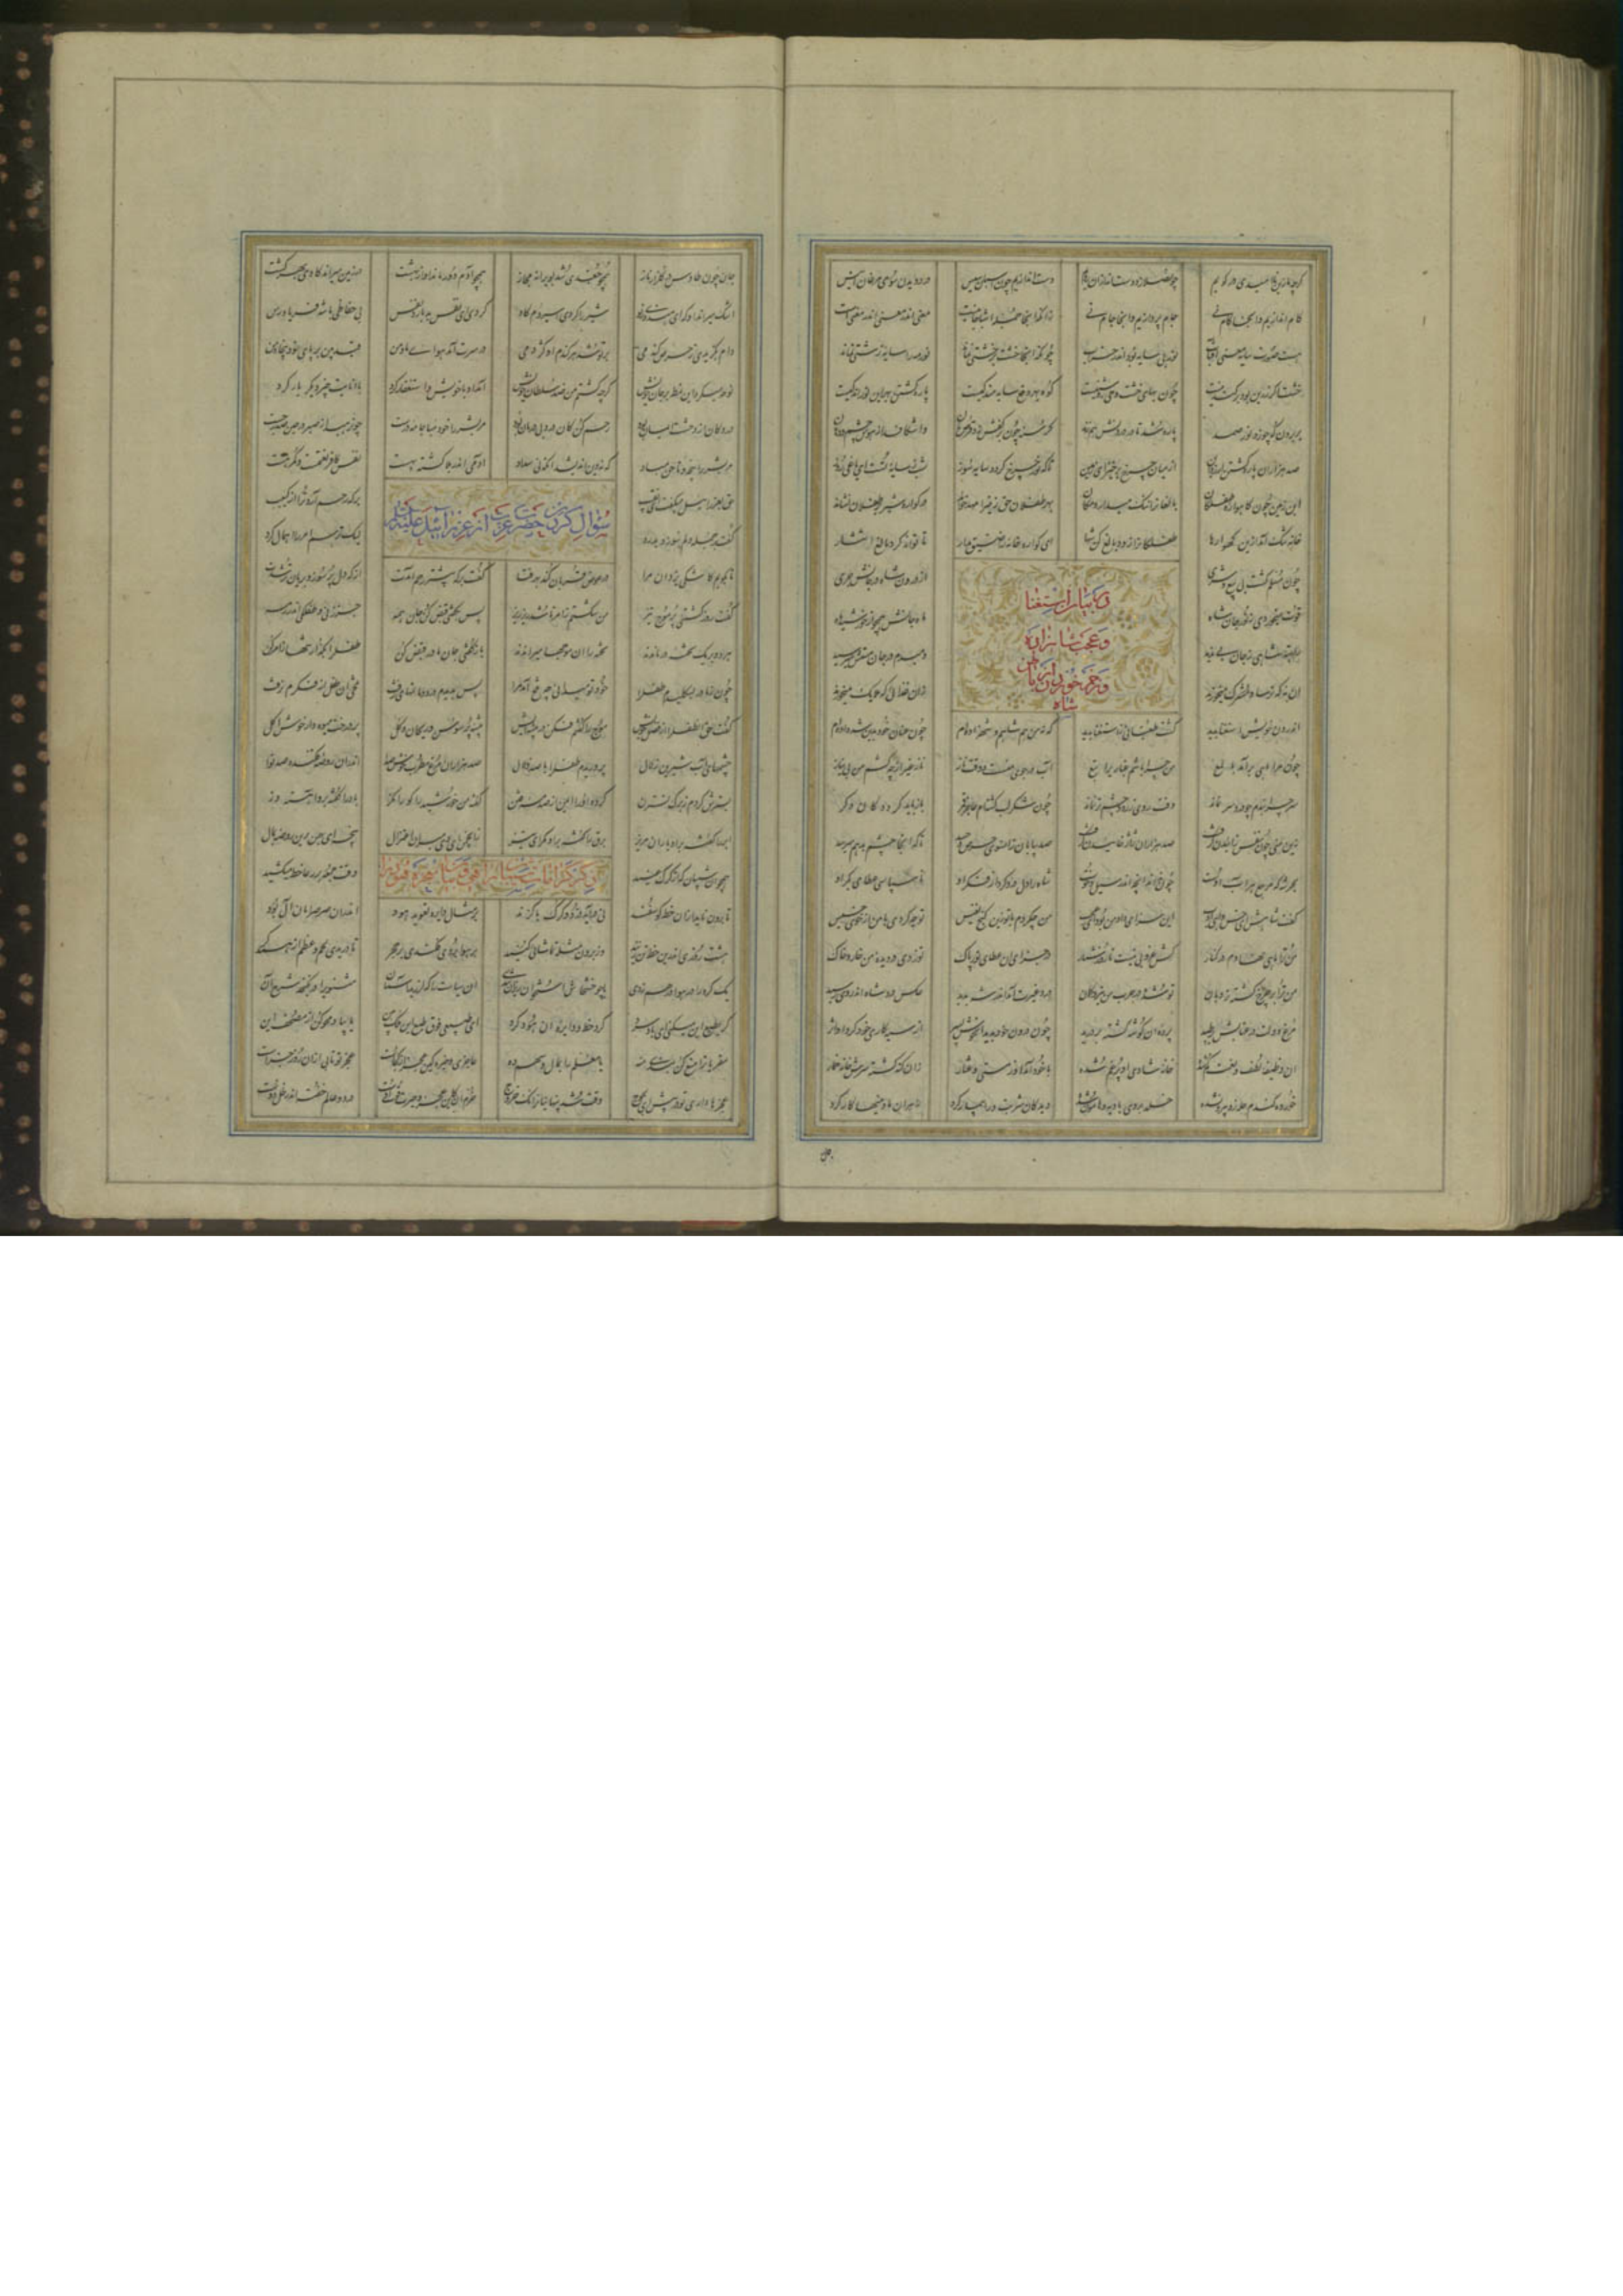 کام اندازیم و آنجا کام نی جام پردازیم و آنجا جام نی زانکه آنجا جمله اشیا جانیست معنی اندر معنی اندر معنیست
هست صورت سایه معنی آفتاب نور بی سایه بود اندر خراب چونکه آنجا خشت بر خشتی نماند نور مه را سایه زشتی نماند
خشت اگر زرین بود بر کندنیست چون بهای خشت وحی و روشنیست کوه بهر دفع سایه مندکیست پاره کشتن بهر این نور اندکیست
بر برون که چو زد نور صمد پاره شد تا در درونش هم زند گرسنه چون بر کفش زد قرص نان وا شکافد از هوس چشم و دهان
صد هزاران پاره کشتن ارزد آن از میان چرخ برخیز ای زمین تا که نور چرخ گردد سایه سوز شب ز سایه تست ای یاغی روز
این زمین چون گاهواره طفلکان بالغان را تنگ میدارد مکان بهر طفلان حق زمین را مهد خواند در گواره شیر بر طفلان فشاند
خانه تنگ آمد ازین گهوارها طفلکان را زود بالغ کن شها ای گواره خانه را ضیق مدار تا تواند کرد بالغ انتشار
در بیان استغنا
و عجب شاهزاده
و زخم خوردن از باطن
شاه
چون مسلم گشت بی بیع و شری از درون شاه در جانش جری
قوت میخوردی ز نور جان شاه ماه جانش همچو از خورشید ماه
شاهی ز جان بی ندید دمبدم در جان مستش میرسید
آن نه که ترسا و مشرک میخورند زان غذائی که ملایک میخورند
اندرون خویش استغنا بدید گشت طغیانی ز استغنا پدید که نه من هم شاه و هم شهزاده ام چون عنان خود بدین شه داده ام
چون مرا ماهی برآمد با لمع من چرا باشم غباری را تبع آب در جوی منست و وقت ناز ناز غیر از چه کشم من بی نیاز
سر چرا بندم چو درد سر نماند وقت روی زرد و چشم تر نماند چون شکر لب گشته ام عارض قمر باز باید کرد دکان دگر
زین منی چون نفس زائیدن گرفت صد هزاران ژاژ خائیدن گرفت صد بیابان زانسوی حرص و حسد تا بدانجا چشم بد هم میرسد
بحر شه که مرجع هر آب اوست چون نداند آنچه اندر سیل و جوست شاه را دل درد کرد از فکر او ناسپاسی عطای بکر او
گفت ای خس واهی ادب این سزای داد من بود ای عجب من چه کردم با تو زین گنج نفیس تو چه کردی با من از خوی خسیس
من ترا ماهی نهادم در کنار که غروبش نیست تا روز شمار در جزای آن عطای نور پاک تو زدی در دیده من خار و خاک
من ترا بر چرخ گشته نردبان تو شده در حرب من تیر و کمان درد غیرت آمد اندر شه پدید عکس درد شاه اندر وی رسید
مرغ دولت در عتابش بر طپید پرده آن گوشه گشته بر درید چون درون خود بدید آن خوش پسر از سیه کاری خود گرد و اثر
آن وظیفه لطف و نعمت کم شده خانه شادی او پر غم شده با خود آمد او ز مستی عقار زان گنه گشته سرش خانه خمار
خورده گندم حله زو بیرون شده خلد بر وی بادیه و هامون شده دید کان شربت ورا بیمار کرد زهر آن ما و منیها کار کرد
جان چون طاوس در گلزار ناز همچو چغدی شد بویرانه مجاز همچو آدم دور ماند او از بهشت در زمین میراند گاوی بهر کشت
اشک میراند او که ای هندوی زاو شیر را کردی اسیر دم گاو کردی ای نفس بد بارد نفس بی حفاظی با شه فریادرس
دام بگزیدی ز حرص گندمی بر تو شد هر گندم او کژدمی در سرت آمد هوای ما و من قید بین بر پای خود پنجاه من
نوحه میکرد این نمط بر جان خویش گشتم من ضد سلطان خویش آمد او با خویش و استغفار کرد با انابت چیز دیگر یار کرد
درد کان از وحشت ایمان بود رحم کن کان درد بی درمان بود مر بشر را خود مبا جامه درست چون رهید از صبر در حین صدر جست
مر بشر را پنجه و ناخن مباد که نه دین اندیشد آنکه نی سداد آدمی اندر بلا کشته بهست نفس کافر نعمتست و گمرهست
سؤال کردن حضرت عزت از عزرائیل علیه السلام
حق بعزرائیل میگفت ای نقیب بر که رحم آمد ترا از هر کئیب
گفت بر جمله دلم سوزد بدرد لیک ترسم امر را اهمال کرد
تا بگویم کاشکی یزدان مرا در عوض قربان کند بهر فتا گفت بر که بیشتر رحم آمدت از که دل پر سوز و بریان تر شدت
گفت روزی کشتی بر موج تیز من شکستم ز امر تا شد ریز ریز پس بگفتی قبض کن جان همه جز زنی و طفلکی اندر رمه
هر دو بر یک تخته در ماندند تخته را آن موجها میراندند باز گفتی جان مادر قبض کن طفل را بگذار تنها ز امر کن
چون ز مادر بسکلیدم طفل را خود تو میدانی چه تلخ آمد مرا پس بدیدم درد ماتمهای زفت تلخی آن طفل از فکرم نرفت
گفت حق آن طفل را از فضل خویش موج را گفتم فکن در بیشه ایش بیشه پر سوسن و ریحان و گل پر درخت میوه دار خوش اکل
چشمهای آب شیرین زلال پروریدم طفل را با صد دلال صد هزاران مرغ مطرب خوش صدا اندران روضه فکنده صد نوا
بسترش کردم ز برگ نسترن کرده او را ایمن از صدمه فتن گفته من خورشید را کو را مگز باد را گفته برو آهسته وز
ابر را گفته برو باران مریز برق را گفته برو مگرای تیز زین چمن ای دی مبران اعتدال پنجه ای بهمن برین روضه ممال
ذکر کرامات شیبان راعی و بیان معجزه هود
همچو آن شیبان که از گرگ عنید وقت جمعه بر رعا خط میکشید
تا برون ناید از آن خط گوسفند نی در آید گرگ با گزند بر مثال دایره تعویذ هود اندران صرصر امان آل بود
هشت روزی اندرین خط تن زنید وز برون مثله تماشا میکنید بر هوا بردی فکندی بر حجر تا دریدی لحم و عظم از همدگر
یک گره را بر هوا در هم زدی تا چو خشخاش استخوان ریزان شدی آن سیاست را که لرزید آسمان مثنوی در نگنجد شرح آن
گر بطبع این میکنی ای باد سرد گرد خط و دایره آن هود گرد ای طبیعی فوق طبع این ملک بین یا بیا و محو کن از مصحف این
مقریان را منع کن بندی بنه یا معلم را بمال و سهم ده عاجزی و خیره کین عجز از کجاست عجز تو تابی از آن روز جزاست
عجزها داری تو در پیش ای لجوج وقت شد پنهانیان را نک خروج خرم آن کین عجز و حیرت قوت اوست در دو عالم خفته اندر ظل دوست